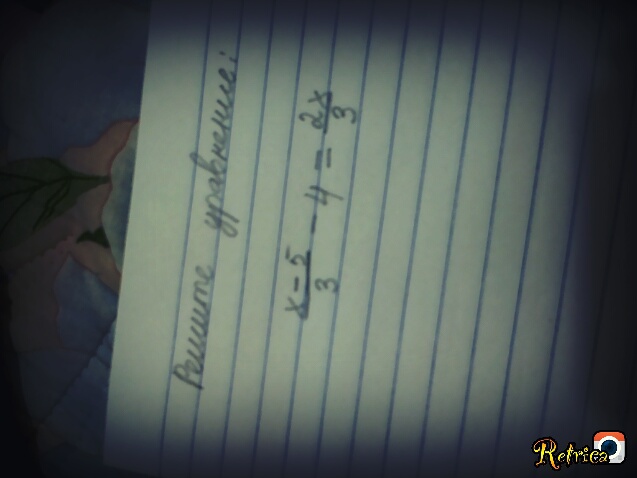 Решите уравнение:
x-5/3 - 4 = 2x/3
Retrica